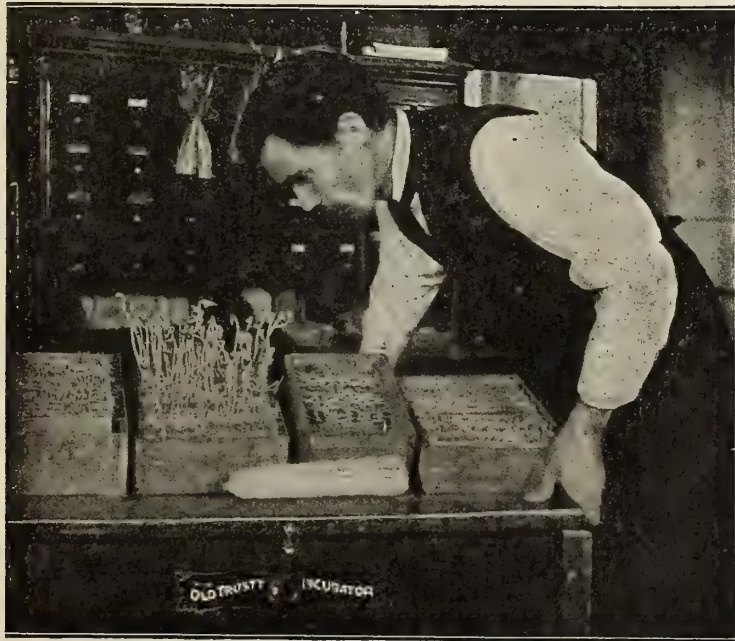 OLD TRUSTY INCUBATOR